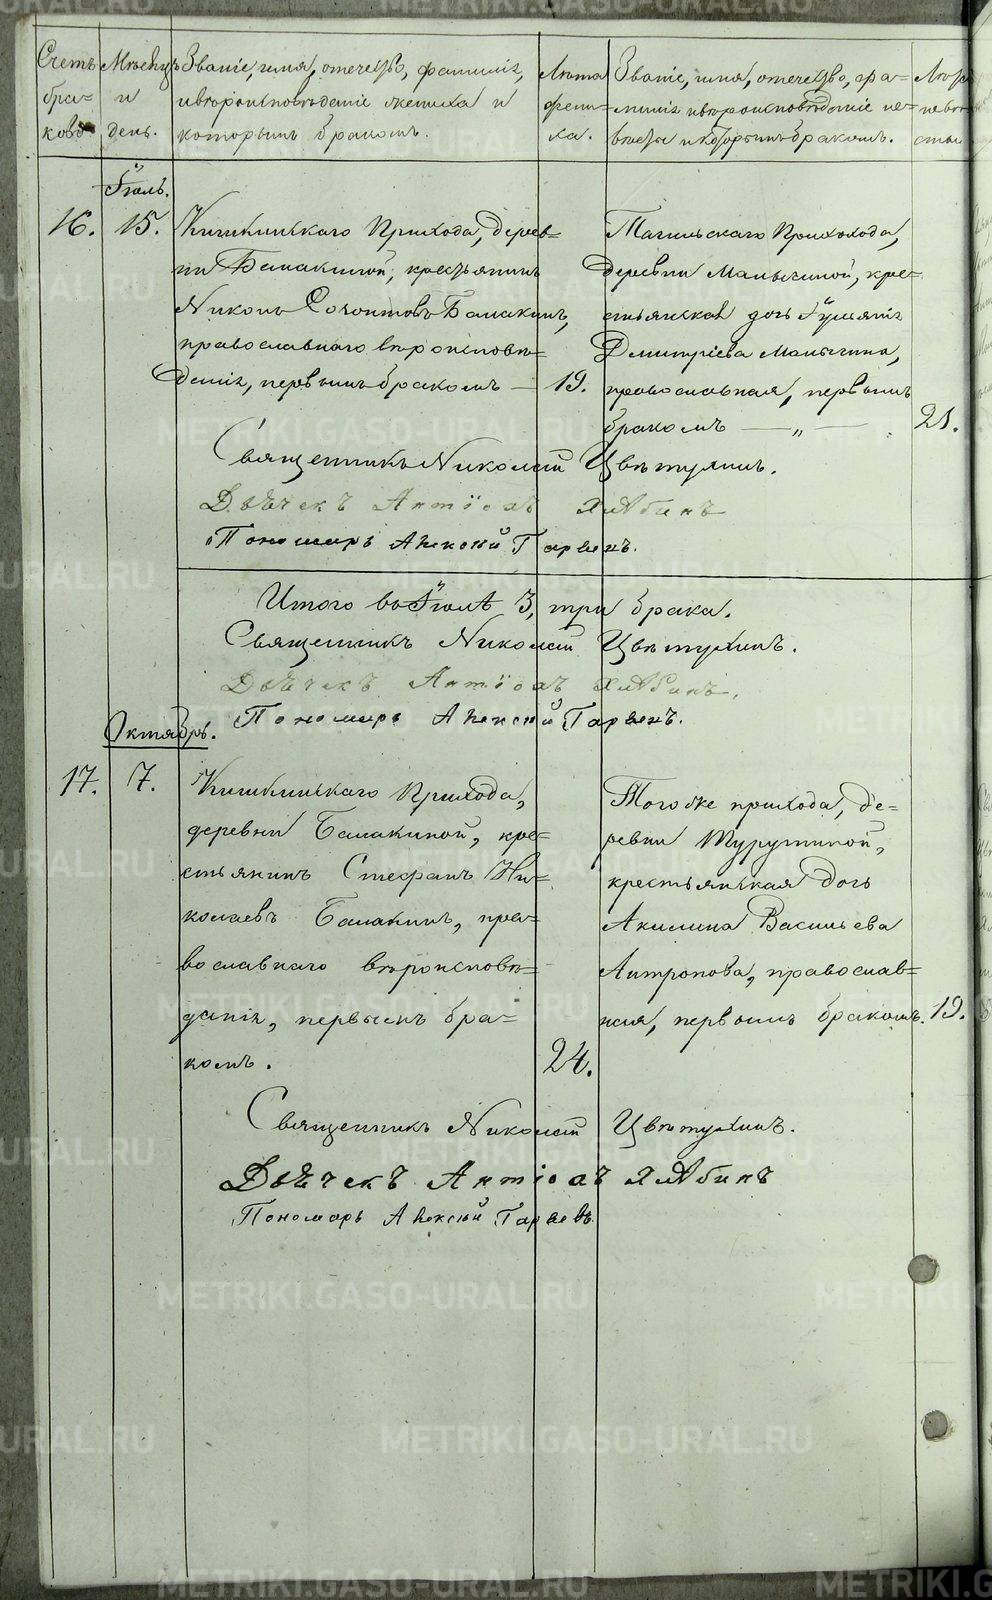 Счетъ бра- ковъ
Мѣсяцъ и день.
Званіе, имя, отечество, фамилія,
и вѣроисповѣданіе жениха и
которымъ бракомъ.
Лѣта жени- ха.
Званіе, имя, отечество, фа-
милія и вѣроисповѣданіе не-
вѣсты и которымъ бракомъ.
Лѣта невѣ- сты
Іюль.
16. 15.
Кишкинскаго Прихода, дерев-
ни Балакиной, крестьянинъ
Никонъ Созонтовъ Балакинъ,
православнаго вѣроисповѣ-
данія, первымъ бракомъ — 19.
Тагильскаго Прихохода,
деревни Малыгиной, кре-
стьянская дочь Іуліанія
Дмитріева Малыгина,
православная, первымъ
бракомъ — „ — 21.
Священникъ Николай Цвѣтухинъ.
Дьячекъ Антіохъ Хлябинъ
Пономарь Алексій Гаряевъ.
Итого въ Іюлѣ 3, три брака.
Священникъ Николай Цвѣтухинъ.
Дьячекъ Антіохъ Хлябинъ.
Пономарь Алексій Гаряевъ.
Октябрь.
17. 7.
Кишкинскаго Прихода,
деревни Балакиной, кре-
стьянинъ Стефанъ Ни-
колаевъ Балакинъ, пра-
вославнаго вѣроисповѣ-
данія, первымъ бра-
комъ. 24.
Того же прихода, де-
ревни Турутиной,
крестьянская дочь
Акилина Васильева
Антропова, православ-
ная, первымъ бракомъ. 19.
Священникъ Николай Цвѣтухинъ.
Дьячекъ Антіохъ Хлябинъ
Пономарь Алексій Гаряевъ.
METRIKI.GASO-URAL.RU